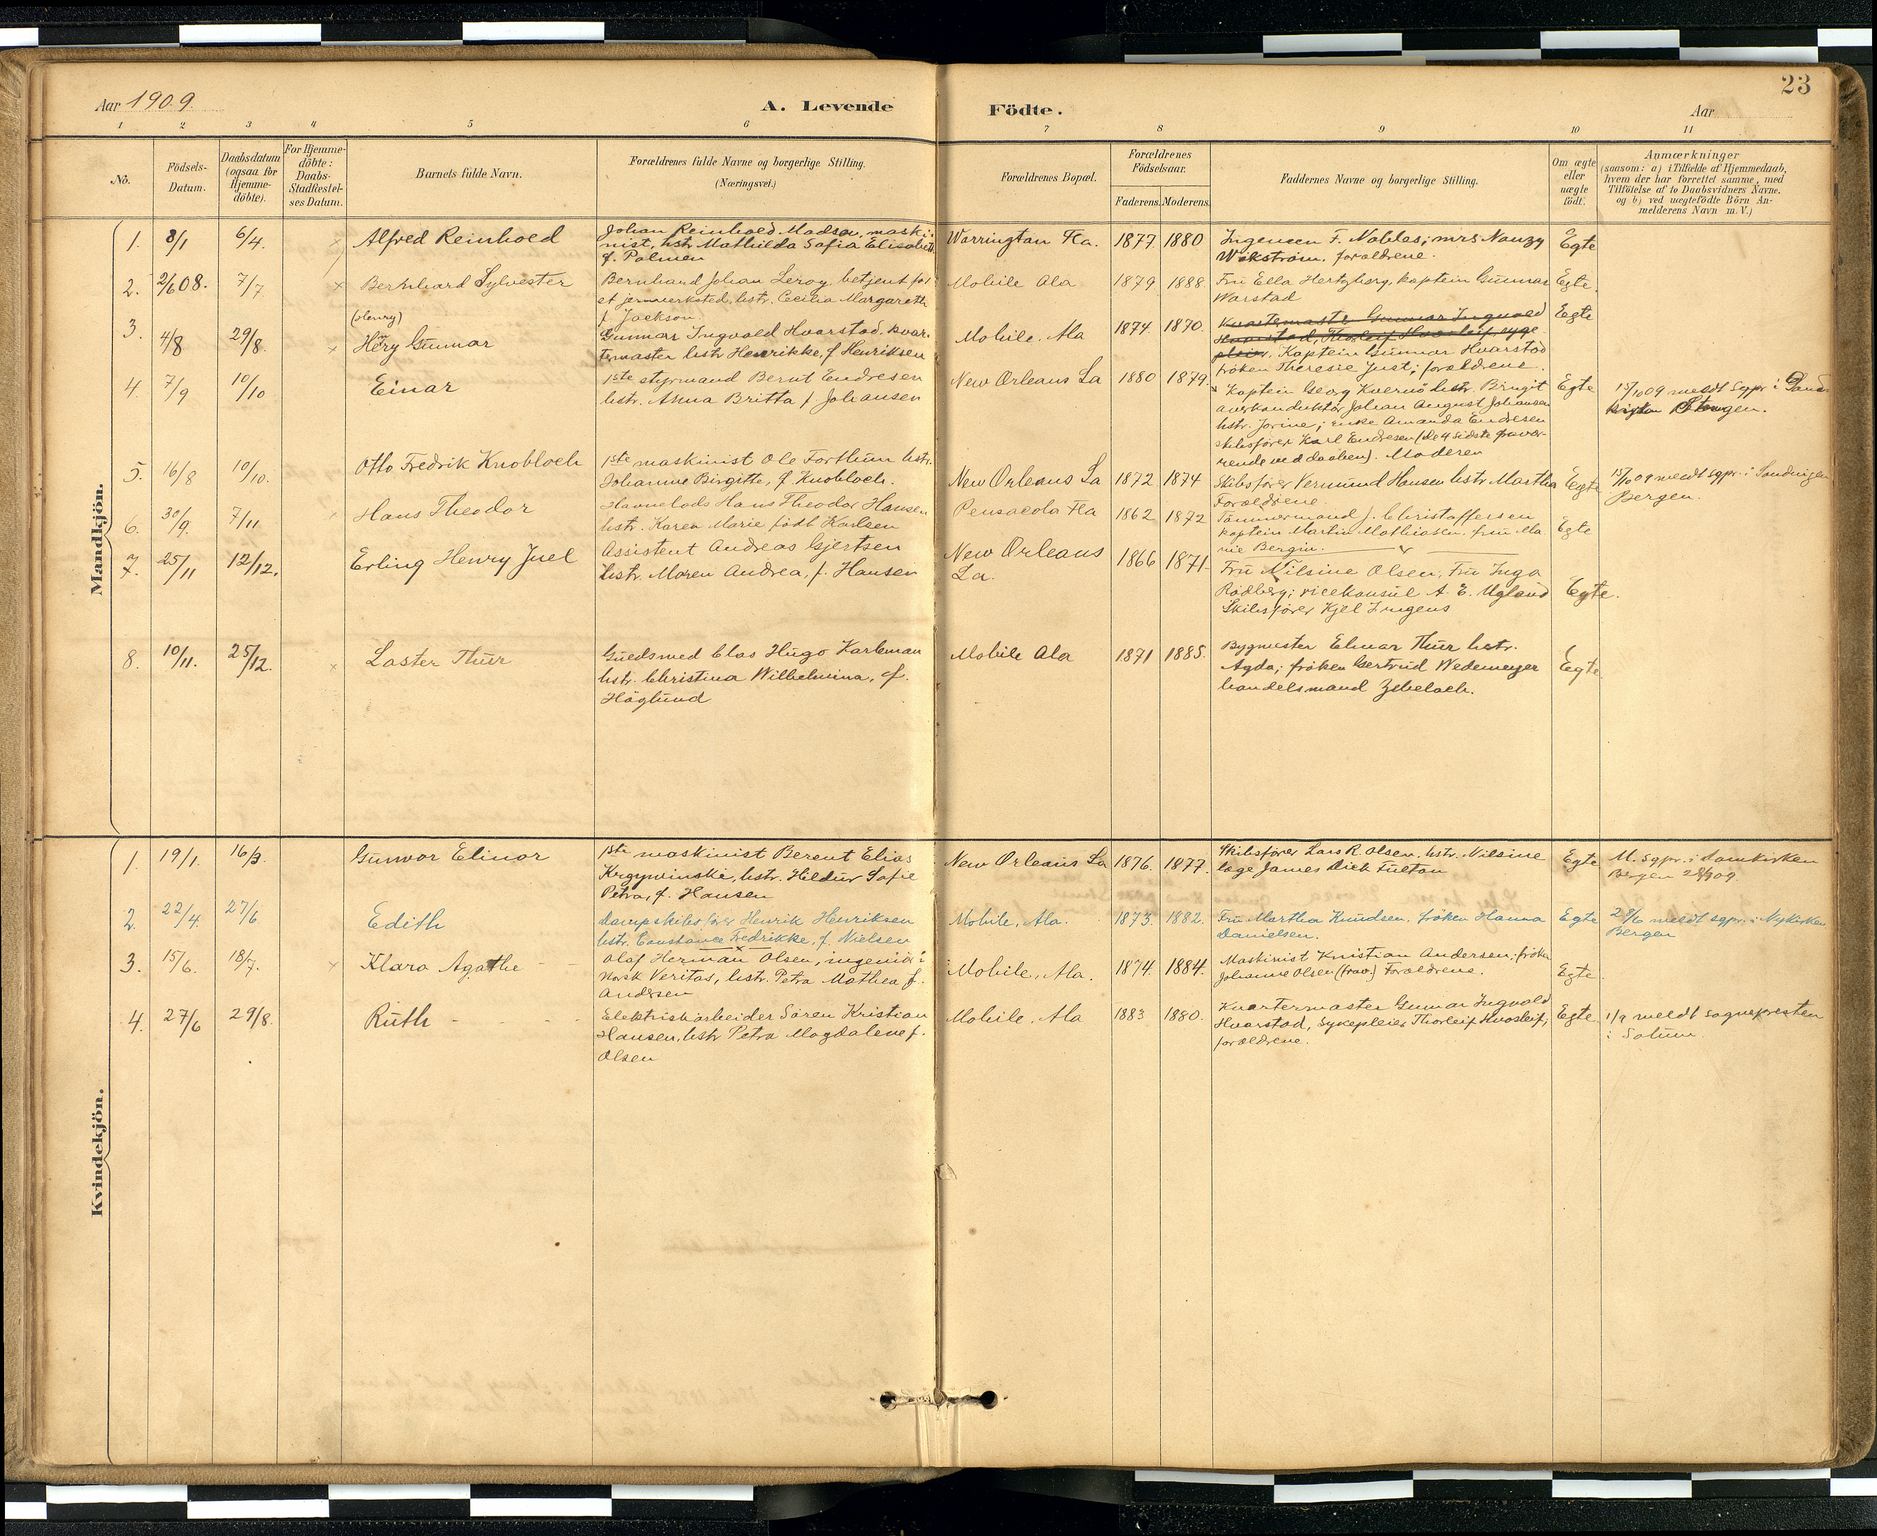 23
Aar 1909.
A. Levende Födte.
Aar
1 2 3 4 5 6 7 8 9 10 11
No.
Födsels-
Datum.
Daabsdatum
(ogsaa for
Hjemme-
döbte).
For Hjemme-
döbte:
Daabs-
Stadfestel-
ses Datum.
Barnets fulde Navn.
Forældrenes fulde Navne og borgerlige Stilling.
(Næringsvei.)
Forældrenes Bopæl.
Forældrenes
Födselsaar.
Faderens. Moderens.
Faddernes Navne og borgerlige Stilling.
Om ægte
eller
uægte
födt.
Anmærkninger
(saasom: a) i Tilfælde af Hjemmedaab,
hvem der har forrettet samme, med
Tilföielse af to Daabsvidners Navne.
og b) ved uægtefödte Börn An-
melderens Navn m. V.)
Mandkjön.
1. 8/1 6/4. × Alfred Reinhold
Johan Reinhold Madsen, maski-
nist, hstr. Mathilda Sofia Elisabet
f. Palmen
Warrington Fla. 1877 1880
Ingenien F. Nobles; mrs Nanzy
Wikström. forældrene.
Egte
2. 2/6 08. 7/7 × Bernhard Sylvester
Bernhard Johan Leroy, betjent for
et jernverksted, hstr. Cecilia Margareth
f. Jackson.
Mobile Ala 1879 1888.
Fru Ella Hertzberg, kaptein Gunnar
Warstad
Egte.
3. 4/8 29/8. × (Henry)
Hery Gunnar
Gunnar Ingvald Hvarstad, kvar-
termaster hstr Henrikke, f Henriksen
Mobile, Ala 1874. 1870.
Kvartemaster Gunnar Ingvald
Hvarstad, Thorleif syge
pleier. Kaptein Gunnar Hvarstad
fröken Theresie Just; forældrene.
Egte
4. 7/9 10/10 Einar
1ste styrmand Bernt Endresen
hstr. Anna Britta f Johansen
New Orleans La 1880 1879.
Kaptein Georg Kvernö hstr. Birgit
averkonduktör Johan August Johansen
hstr. Jorine; enke Amanda Endresen
skibsförer Karl Endresen (de 4 sidste fravæ-
rende ved daaben). Moderen
Egte
15/10 09 meldt sgpr. i
5. 16/8 10/10. Otto Fredrik Knobloch
1ste maskinist Ole Forthun hstr.
Johanne Birgitte, f Knobloch.
New Orleans La 1872 1874
Skibsförer Vermund Hansen hstr Martha
Forældrene.
Egte
15/10 09 meldt sgpr. i Sandvigen
Bergen.
6. 30/9. 7/11 Hans Theodor
Havnelods Hans Theodor Hansen
hstr. Karen Marie födt Karlsen
Pensacola Fla 1862 1872
Tömmermand J. Christoffersen
kaptein Martin Mathiasen. fru Ma-
rie Bergin.
Egte
7. 25/11 12/12. Erling Henry Juel
Assistent Andreas Gjertsen
hstr. Maren Andrea, f. Hansen
New Orleans
La. 1866 1871
Fru Nilsine Olsen, Fru Inga
Rödberg; vicekonsul A. E. Ugland
Skibsförer Kjel Jrugens
Egte.
8. 10/11. 25/12. × Laster Thur
Guldsmed Clas Hugo Karleman
hstr. Christina Wilhelmina, f.
Höglund
Mobile Ala 1871 1885.
Bygmester Elmar Thur hstr.
Agda; fröken Gertrud Wedemeyer
handelsmand Zebeloch.
Egte
Kvindekjön.
1. 19/1. 16/3. Gunvor Elinor
1ste maskinist Berent Elias
Krgywinski, hstr. Hildur Sofie
Petra, f. Hansen
New Orleans La 1876. 1877.
Skibsförer Lars R. Olsen, hstr. Nilsine
læge James Dick Fulton
Egte
M. sgpr. i Domkirken
Bergen 09.
2. 22/4. 27/6 Edith
Dampskibsförer Henrik Henriksen
hstr. Constance Fredrikke, f. Nielsen
Mobile, Ala. 1873. 1882.
Fru Martha Knudsen, fröken Hanna
Danielsen.
Egte
28/6 meldt sgpr. i Nykirken
Bergen
3. 15/6. 18/7. × Klara Agathe
Olaf Herman Olsen, ingeniör i
Norsk Veritas, hstr. Petra Mathea f.
Andersen
Mobile, Ala. 1874. 1884.
Maskinist Kristian Andersen, fröken
Johanne Olsen (frav.) Forældrene.
Egte
4. 27/6 29/8. Ruth
Elektriskarbeider Sören Kristian
Hansen, hstr Petra Magdalene f.
Olsen
Mobile, Ala 1883 1880.
Kvartermaster Gunnar Ingvald
Hvarstad, Sykepleier Thorleif
forældrene.
Egte
1/9 meldt sognepresten
i Solum